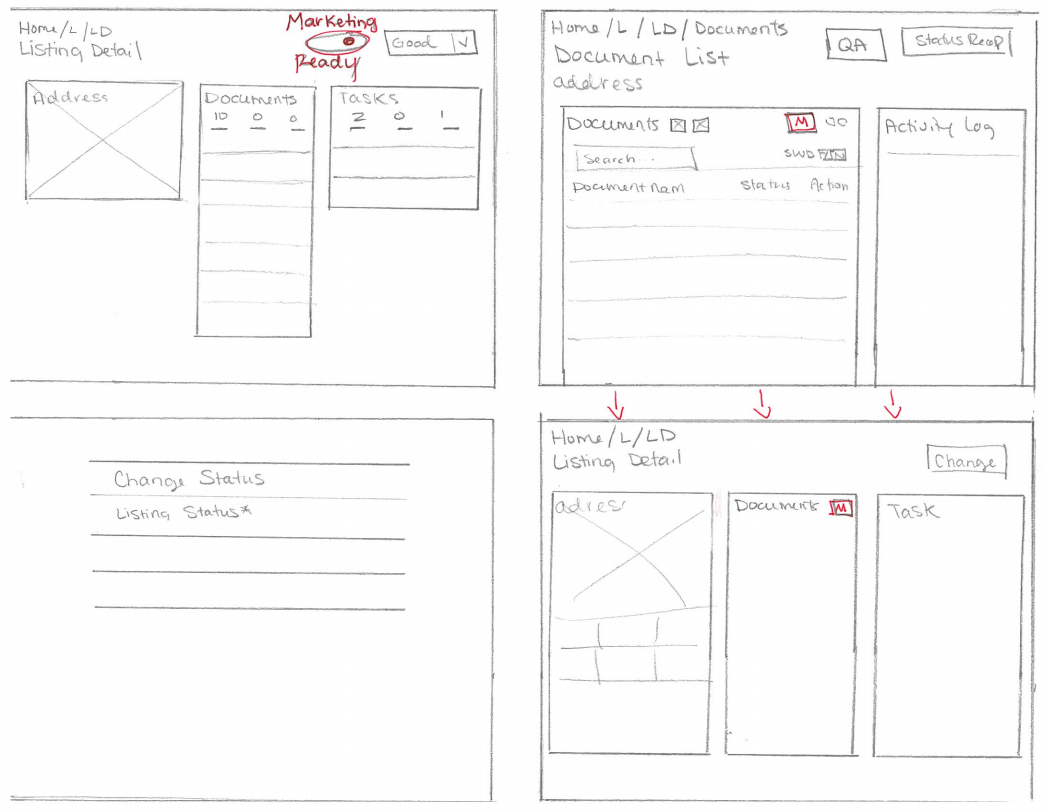 Home/L/LD
Listing Detail
Marketing
Ready
Good
Address
Documents
10 0 0
Tasks
2 0 1
Home/L/LD/Documents
Document List
address
QA
Status Recap
Documents
M
Search...
SWD
Document Nam Status Action
Activity Log
Change Status
Listing Status*
Home/L/LD
Listing Detail
Change
adres
Documents M
Task